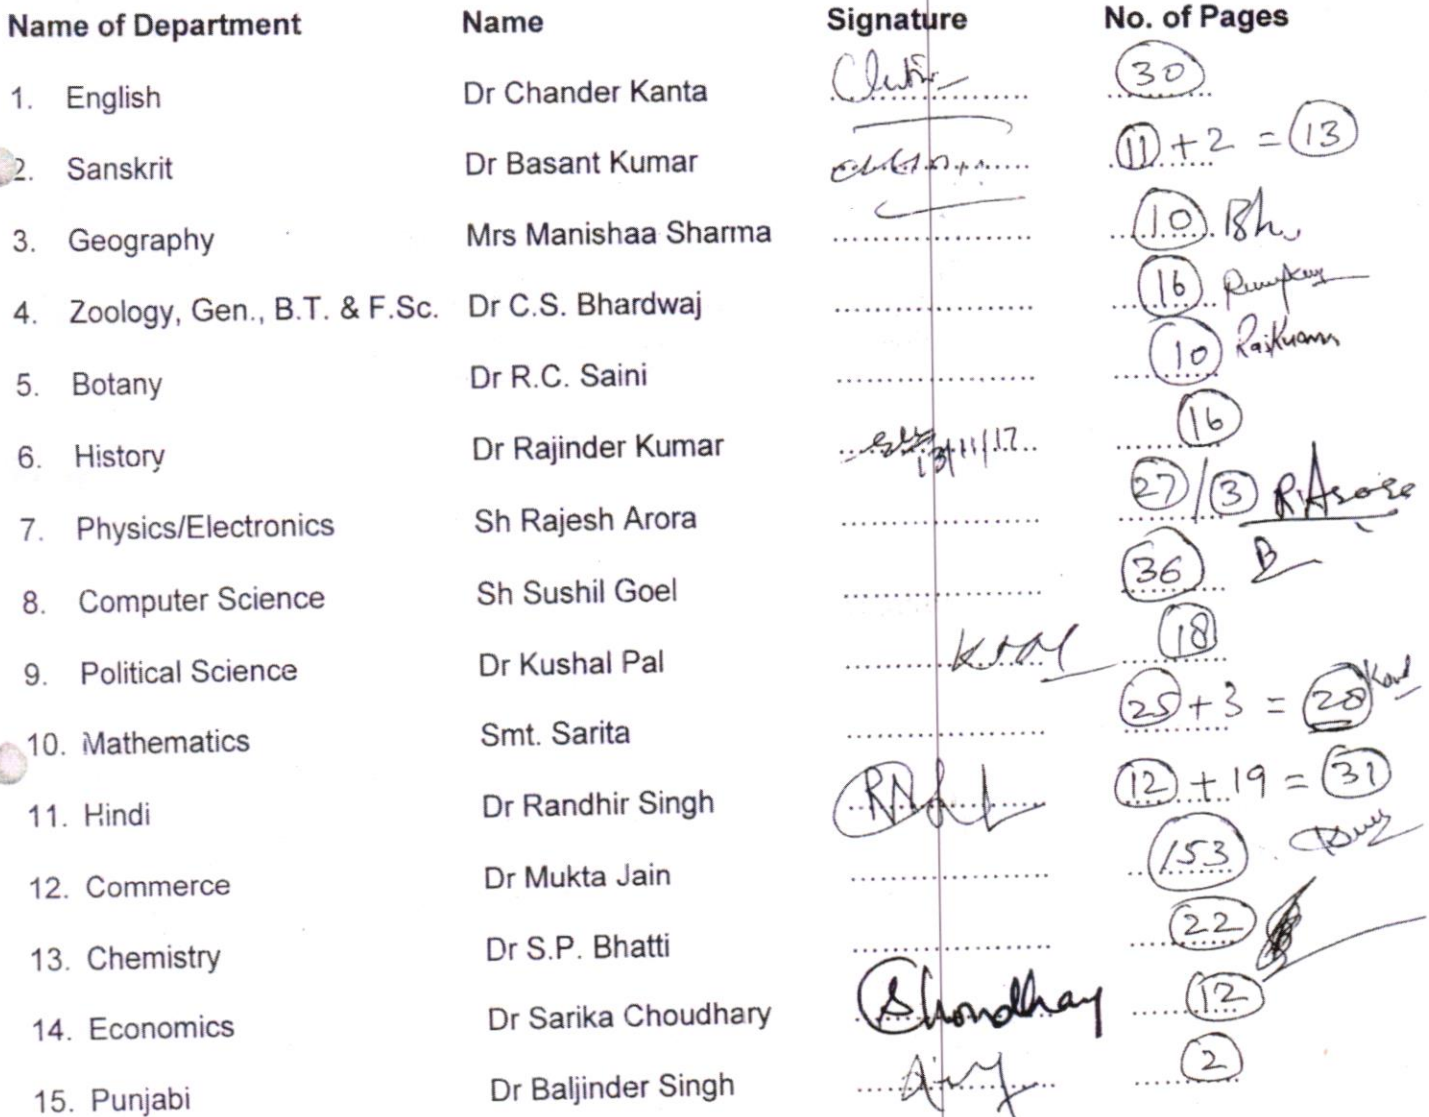 Name of Department Name Signature No. of Pages
1. English Dr Chander Kanta 30
2. Sanskrit Dr Basant Kumar 11 + 2 = 13
3. Geography Mrs Manishaa Sharma 10
4. Zoology, Gen., B.T. & F.Sc. Dr C.S. Bhardwaj 16
5. Botany Dr R.C. Saini 10
6. History Dr Rajinder Kumar 13/11/17 16
7. Physics/Electronics Sh Rajesh Arora 27/3 R Arora
8. Computer Science Sh Sushil Goel 36
9. Political Science Dr Kushal Pal 18
10. Mathematics Smt. Sarita 25 + 3 = 28
11. Hindi Dr Randhir Singh 12 + 19 = 31
12. Commerce Dr Mukta Jain 153
13. Chemistry Dr S.P. Bhatti 22
14. Economics Dr Sarika Choudhary 12
15. Punjabi Dr Baljinder Singh 2